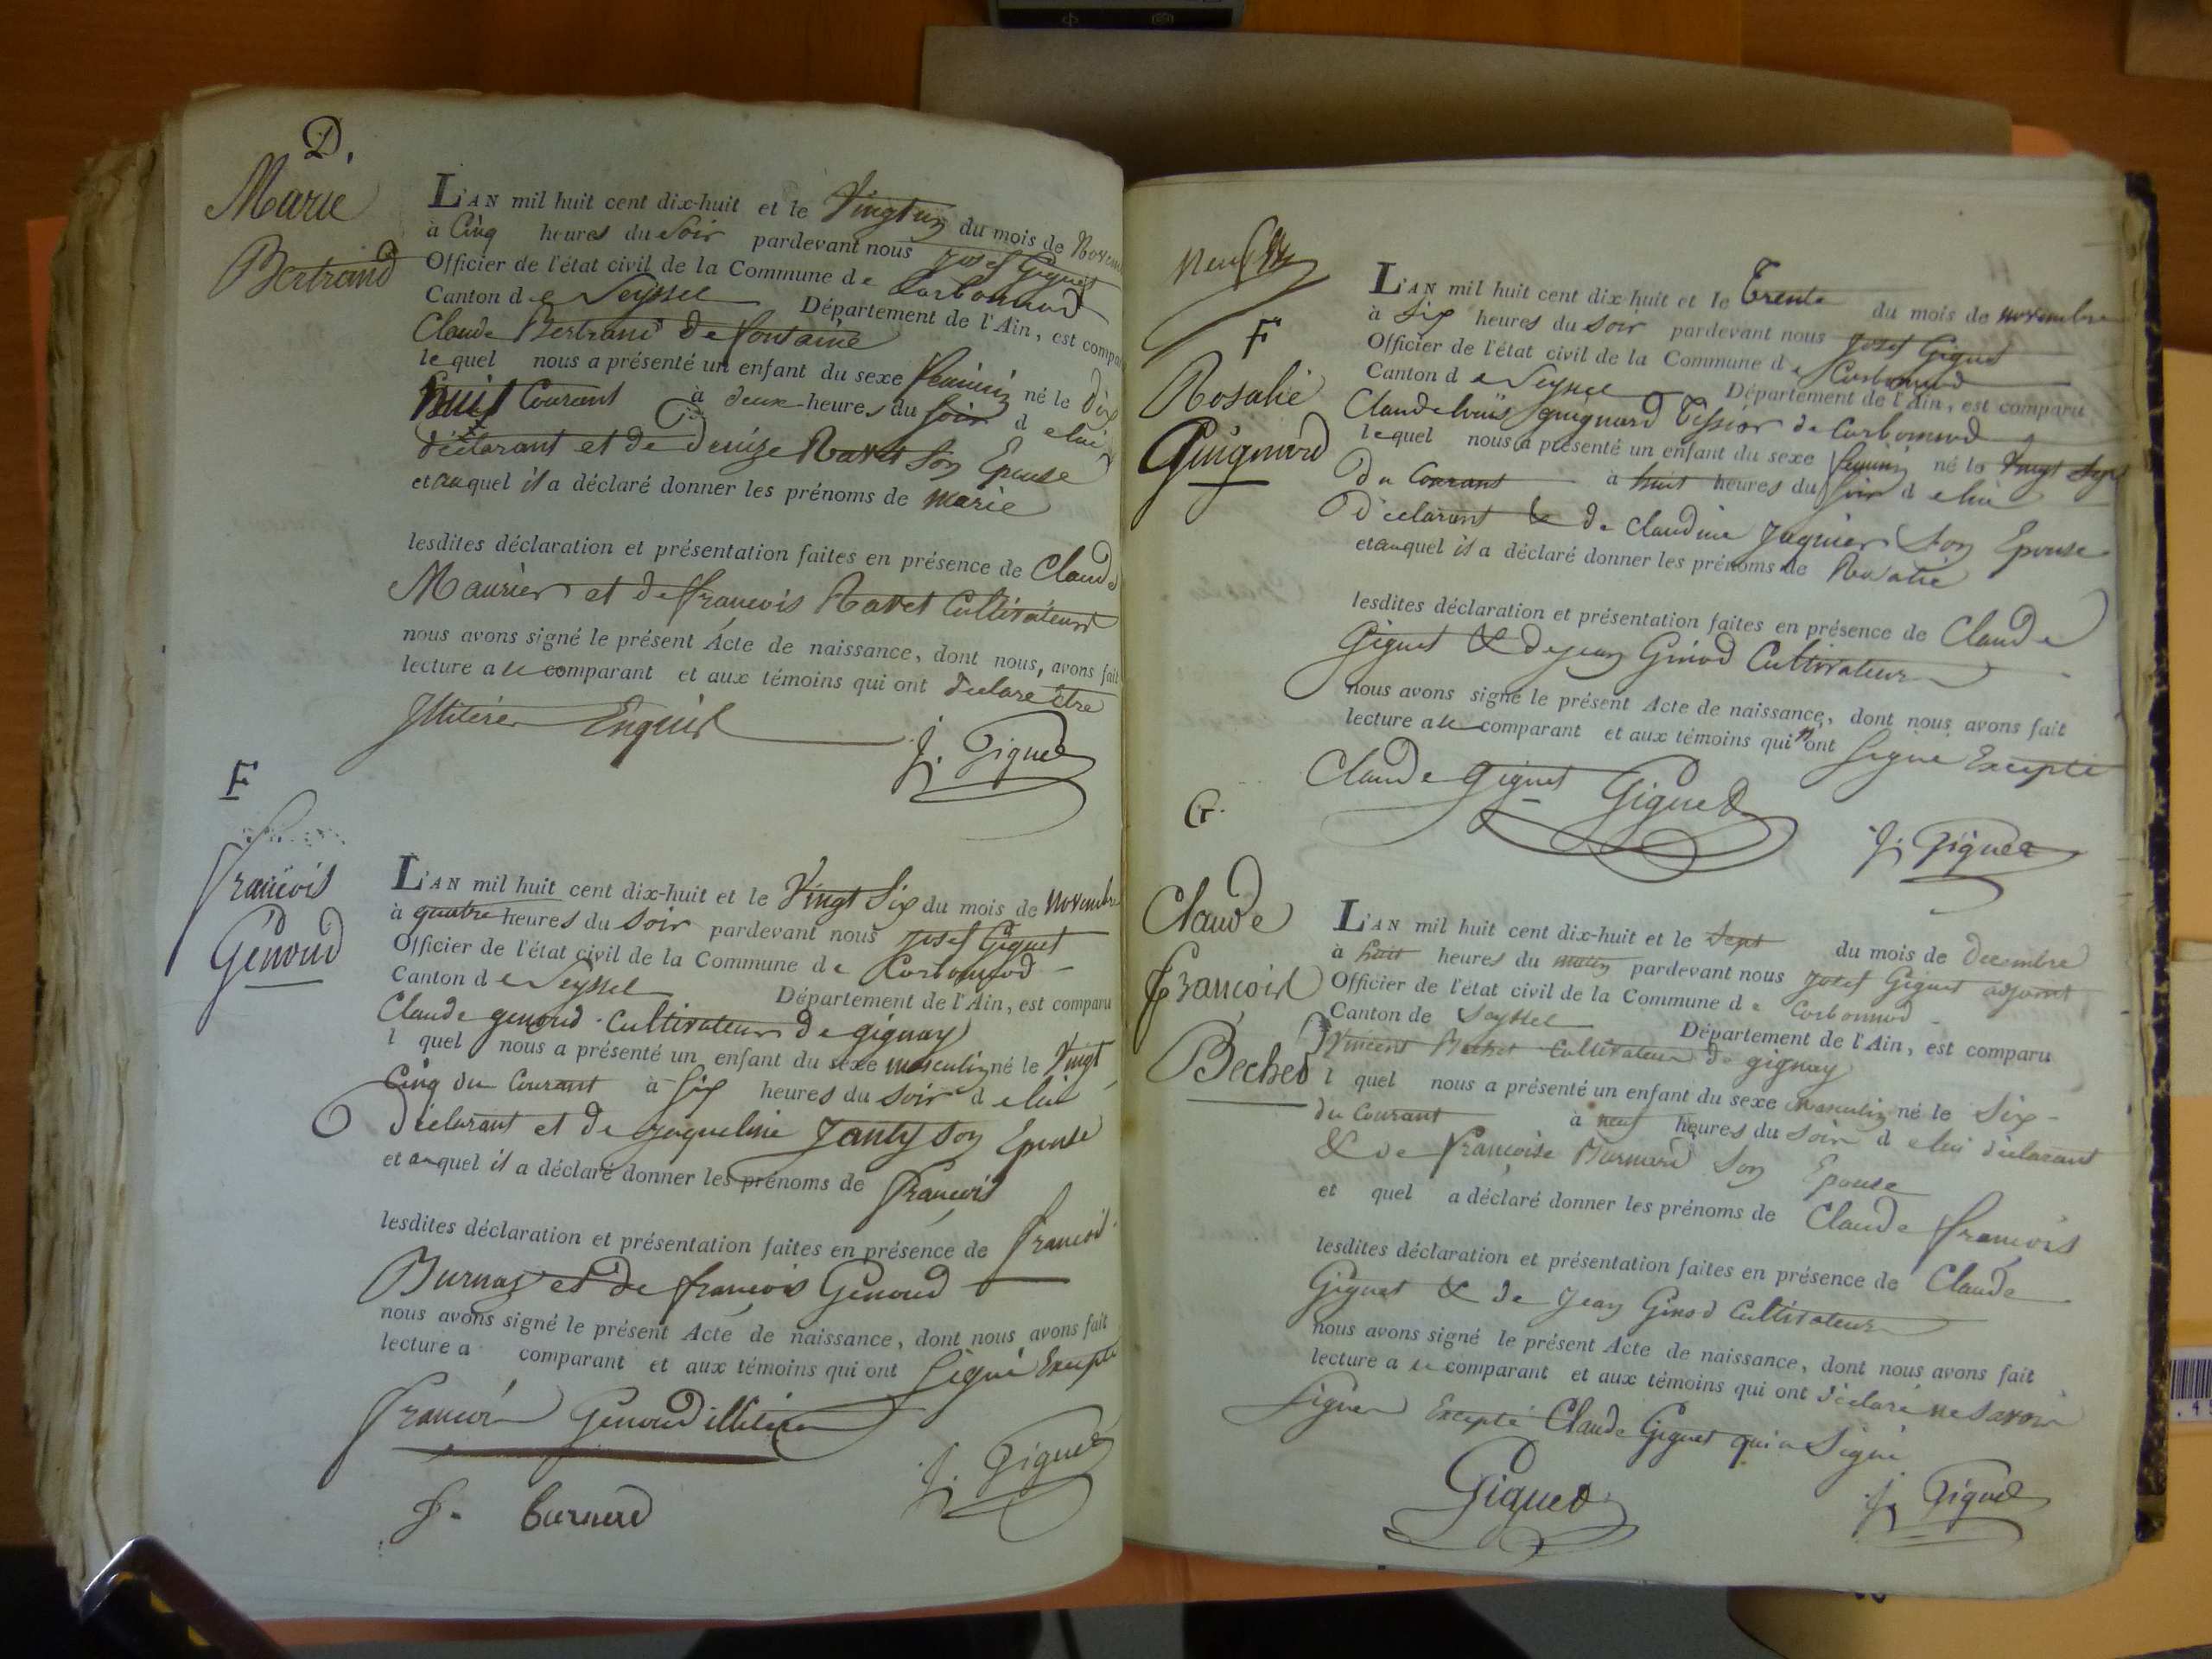 D.
Marie
Bertrand
L'AN mil huit cent dix-huit et le Vingt un du mois de Novem
à Cinq heures du Soir pardevant nous josef Giguet
Officier de l'état civil de la Commune de Corbonnod
Canton de Seyssel Département de l'Ain, est compa
Claude Bertrand de fontaine
lequel nous a présenté un enfant du sexe feminin né le dix
huit Courant à deux heures du soir de lui
déclarant et de denize Ravet son Epouse
et auquel il a déclaré donner les prénoms de marie
lesdites déclaration et présentation faites en présence de Claude
Maurier et de françois Ravet Cultivateurs
nous avons signé le présent Acte de naissance, dont nous, avons fait
lecture a le comparant et aux témoins qui ont declare être
Illiterer Enquis
J. Giguet
F
françois
Genoud
L'AN mil huit cent dix-huit et le Vingt Six du mois de novembre
à quatre heures du Soir pardevant nous josef Giguet
Officier de l'état civil de la Commune de Corbonnod
Canton de Seyssel Département de l'Ain, est comparu
Claude genoud Cultivateur de gignay
l quel nous a présenté un enfant du sexe masculin né le Vingt
Cinq du Courant à Six heures du Soir de lui
Déclarant et de jaqueline Janty son Epouse
et auquel il a déclaré donner les prénoms de françois
lesdites déclaration et présentation faites en présence de françois
Burnaz et de françois Genoud
nous avons signé le présent Acte de naissance, dont nous avons fait
lecture a comparant et aux témoins qui ont Signé Excepté
françois Genoud illiterer
J. Giguet
f. burnard
F
Rosalie
Guignard
L'AN mil huit cent dix huit et le Trente du mois de novembre
à Six heures du Soir pardevant nous josef Giguet
Officier de l'état civil de la Commune de Corbonnod
Canton de Seyssel Département de l'Ain, est comparu
Claudelouis guignard Tessier de Corbonnod
lequel nous a présenté un enfant du sexe feminin né le Vingt Sept
Du Courant à huit heures du soir de lui
Déclarant & de Claudine Jaquier Son Epouse
et auquel il a déclaré donner les prénoms de Rosalie
lesdites déclaration et présentation faites en présence de Claude
Giguet & de jean Ginod Cultivateur
nous avons signé le présent Acte de naissance, dont nous avons fait
lecture a le comparant et aux témoins qui n'ont Signé Excepté
Claude Giguet Giguet
J. Giguet
G.
Claude
François
Béchet
L'AN mil huit cent dix-huit et le Sept du mois de decembre
à huit heures du matin pardevant nous josef Giguet adjoint
Officier de l'état civil de la Commune de Corbonnod
Canton de Seyssel Département de l'Ain, est comparu
Vincent Bechet Cultivateur de gignay
l quel nous a présenté un enfant du sexe masculin né le Six
du Courant à neuf heures du Soir de lui déclarant
& de françoise Burnard Son Epouse
et quel a déclaré donner les prénoms de Claude françois
lesdites déclaration et présentation faites en présence de Claude
Giguet & de Jean Ginod Cultivateur
nous avons signé le présent Acte de naissance, dont nous avons fait
lecture a le comparant et aux témoins qui ont déclaré ne Savoir
Signer Excepté Claude Giguet qui a Signé
Giguet
J. Giguet